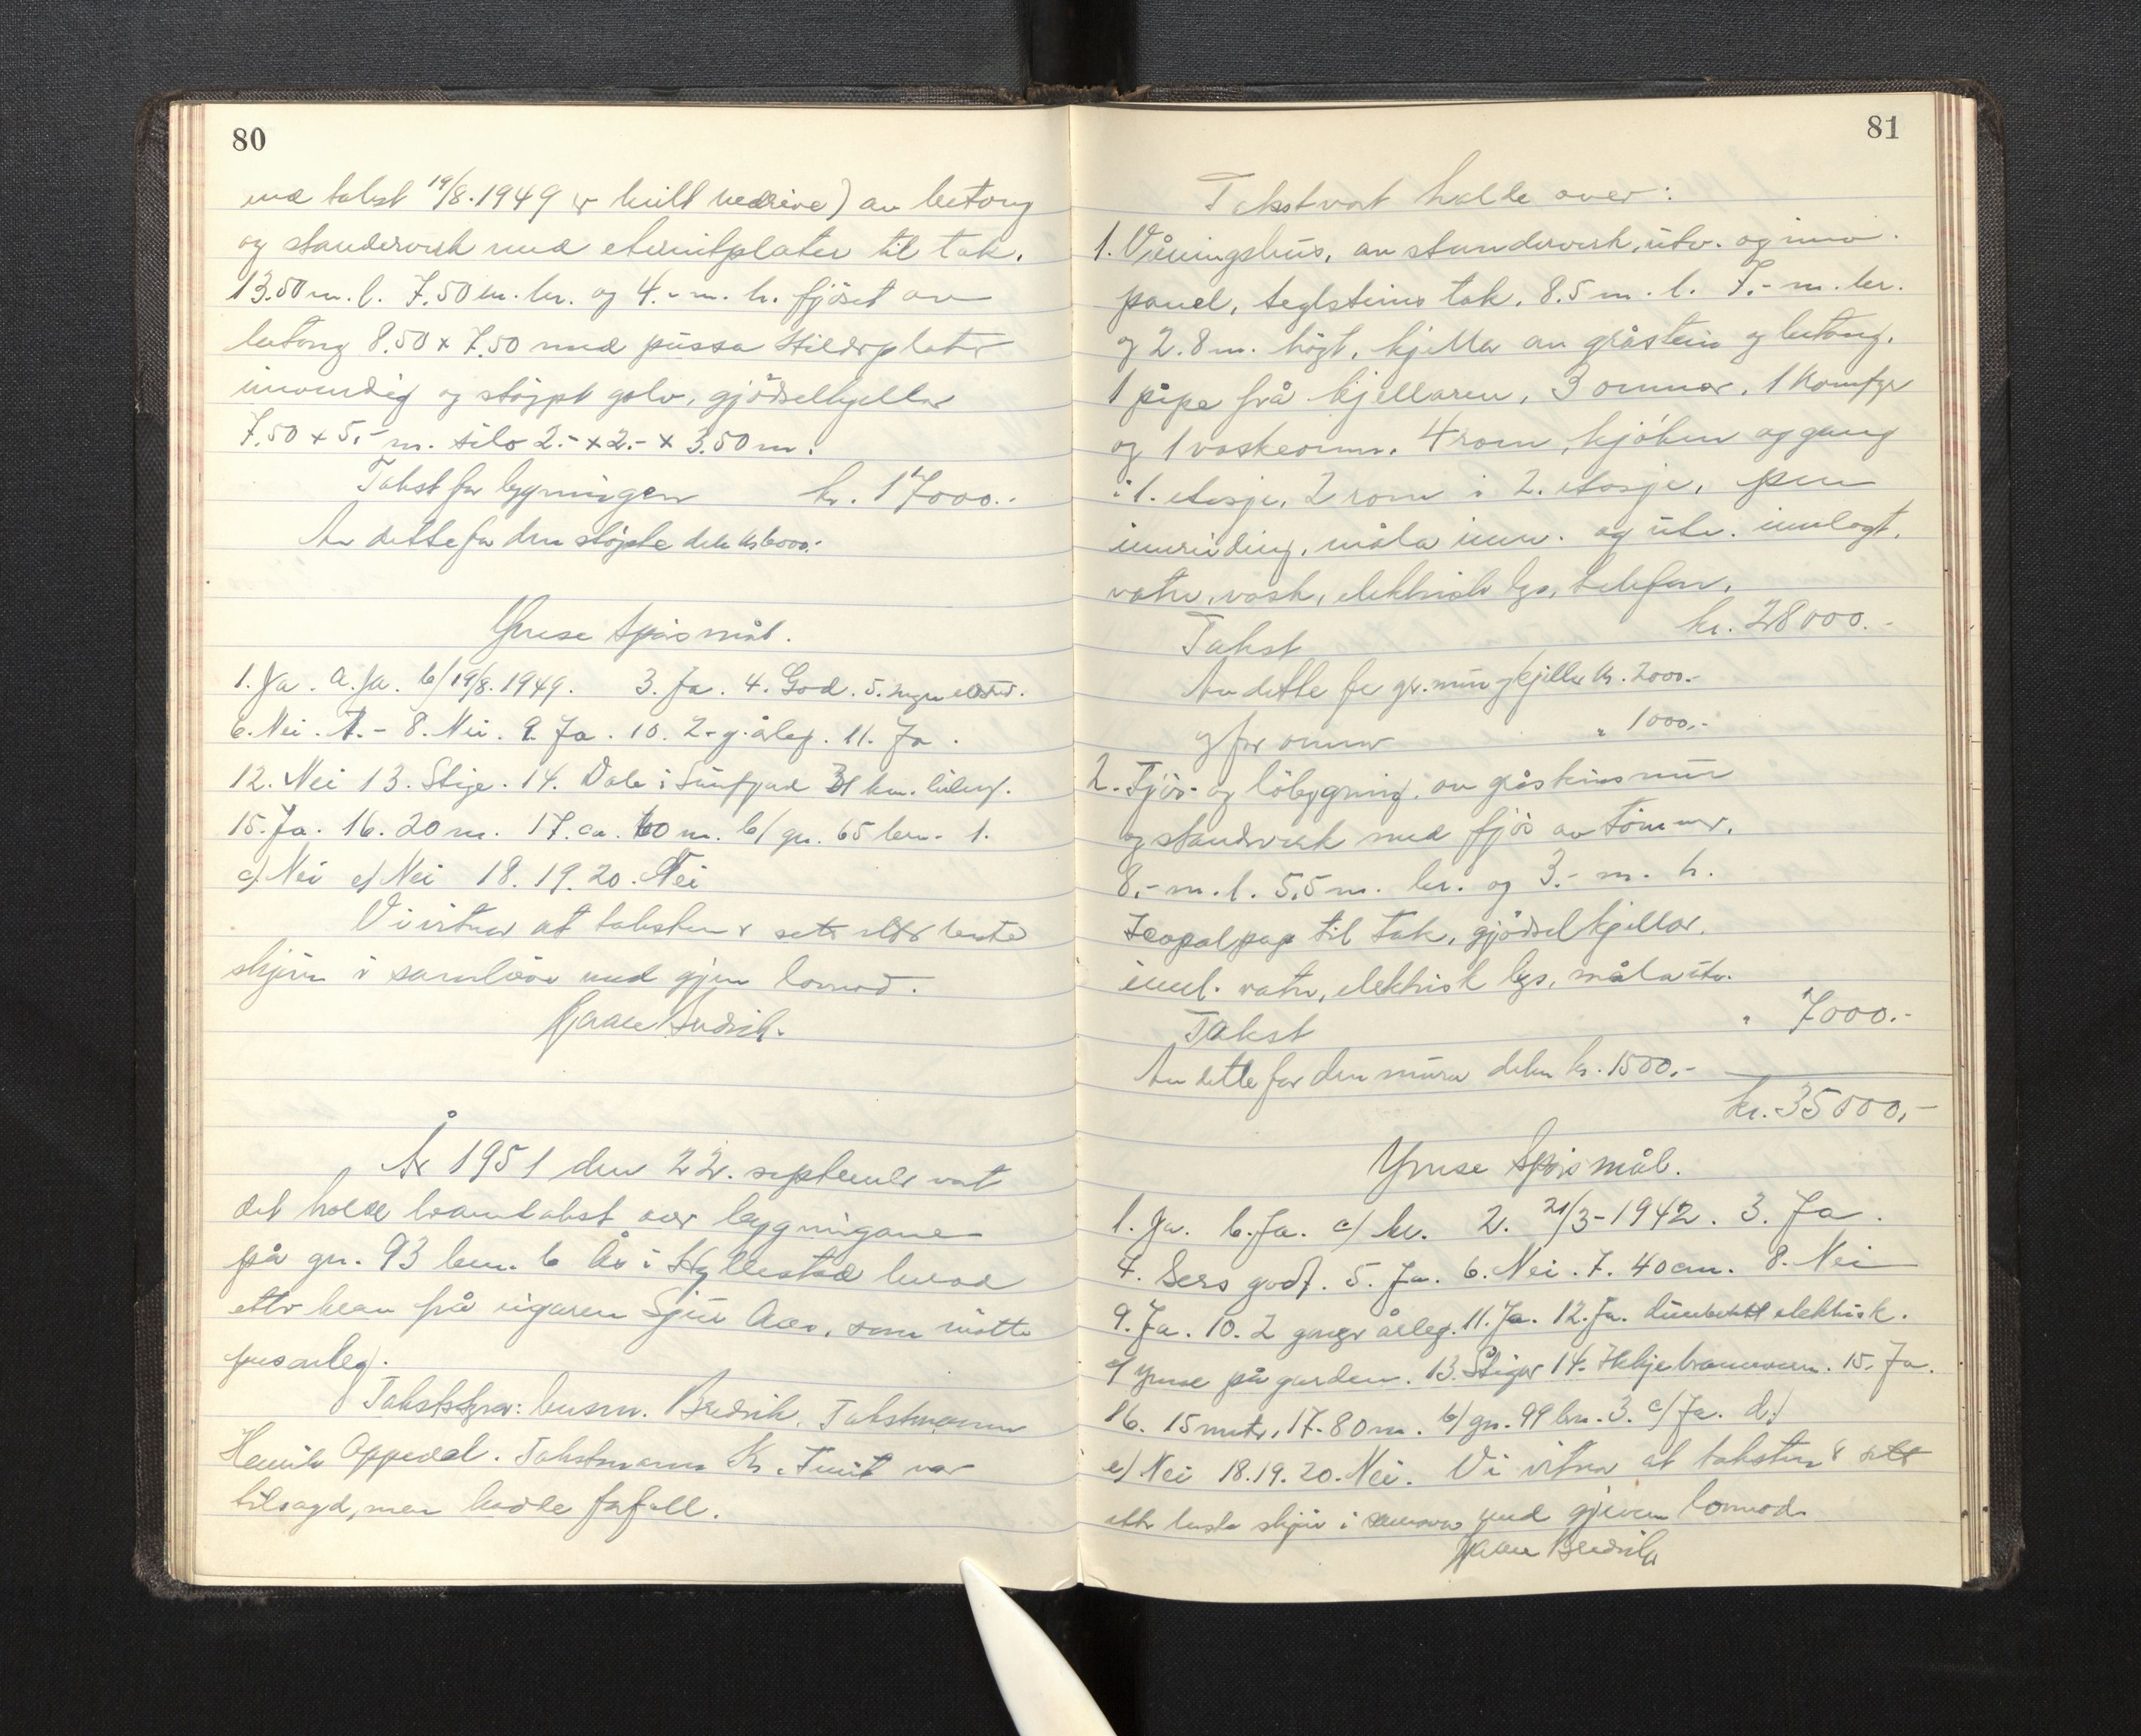 80
ved takst 19/8.1949 er heilt nedrive) av betong
og standerverk med eternitplater til tak.
13.50 m. l. 7.50 m. br. og 4.- m. h. fjöset av
betong 8.50 x 7.50 med pussa plater
innvendig og støypt golv, gjødselkjellar
7.50 x 5.- m. silo 2.- x 2.- x 3.50 m.
Takst for bygningen kr. 17000.-
Av dette for den støpte del kr 6000.-
Ymse Spörsmål.
1. Ja. a. Ja. b/ 19/8.1949. 3. Ja. 4. God. 5.
6. Nei. 7. - 8. Nei. 9. Ja. 10. 2 g. årleg. 11. Ja.
12. Nei 13. Stige. 14. Dale i Sunnfjord 31 km.
15. Ja. 16. 20 m. 17. ca. 60 m. b/ gn. 65 bn. 1.
c/ Nei e/ Nei 18. 19. 20. Nei
Vi vitnar at taksten er sett etter beste
skjøn i samsvar med gjeven lovnad.
Bredvik.
År 1951 den 22. september vart
det halde branntakst over bygningane
på gn. 93 bn. 6 Ås i Hyllestad herad
etter krav frå eigaren Sjur Aas, som møtte
personleg.
Takststyrar: lensm. Bredvik. Takstmann
Henrik Oppedal. Takstmann Kr. var
tilsagd, men hadde forfall.
81
Takst vart halde over:
1. Våningshus, av standerverk, utv. og innv.
panel, teglsteins tak. 8.5 m. l. 7.- m. br.
og 2.8 m. högt, kjellar av gråstein og betong.
1 pipe frå kjellaren, 3 omnar, 1 komfyr
og 1 vaskeomn. 4 rom, kjöken og gang
i 1. etasje, 2 rom i 2. etasje, pen
innreiding, måla innv. og utv. innlagt.
vatn, vask, elektrisk lys, telefon.
Takst kr. 28000.-
Av dette for gr.mur og kjellar kr. 2000.-
og for omnar " 1000.-
2. Fjös- og löbygning. av gråsteins mur
og standverk med fjös av tömmer.
8.- m. l. 5.5 m. br. og 3.- m. h.
Icopalpap til tak, gjödselkjellar.
innl. vatn, elektrisk lys, måla utv.
Takst " 7000.-
Av dette for den mura delen kr. 1500.-
kr. 35000,-
Ymse Spörsmål.
1. Ja. b. Ja. c/ kr. 2. 21/3-1942. 3. Ja.
4. Sers godt. 5. Ja. 6. Nei. 7. 40 cm. 8. Nei
9. Ja. 10. 2 gonger årleg. 11. Ja. 12. Ja. elektrisk.
og ymse på garden. 13. Stigar 14. brannvern. 15. Ja.
16. 15 meter, 17. 80 m. b/ gn. 99 bn. 3. c/ Ja. d/
e/ Nei 18. 19. 20. Nei. Vi vitnar at taksten er sett
etter beste skjøn i samsvar med gjeven lovnad.
Bredvik